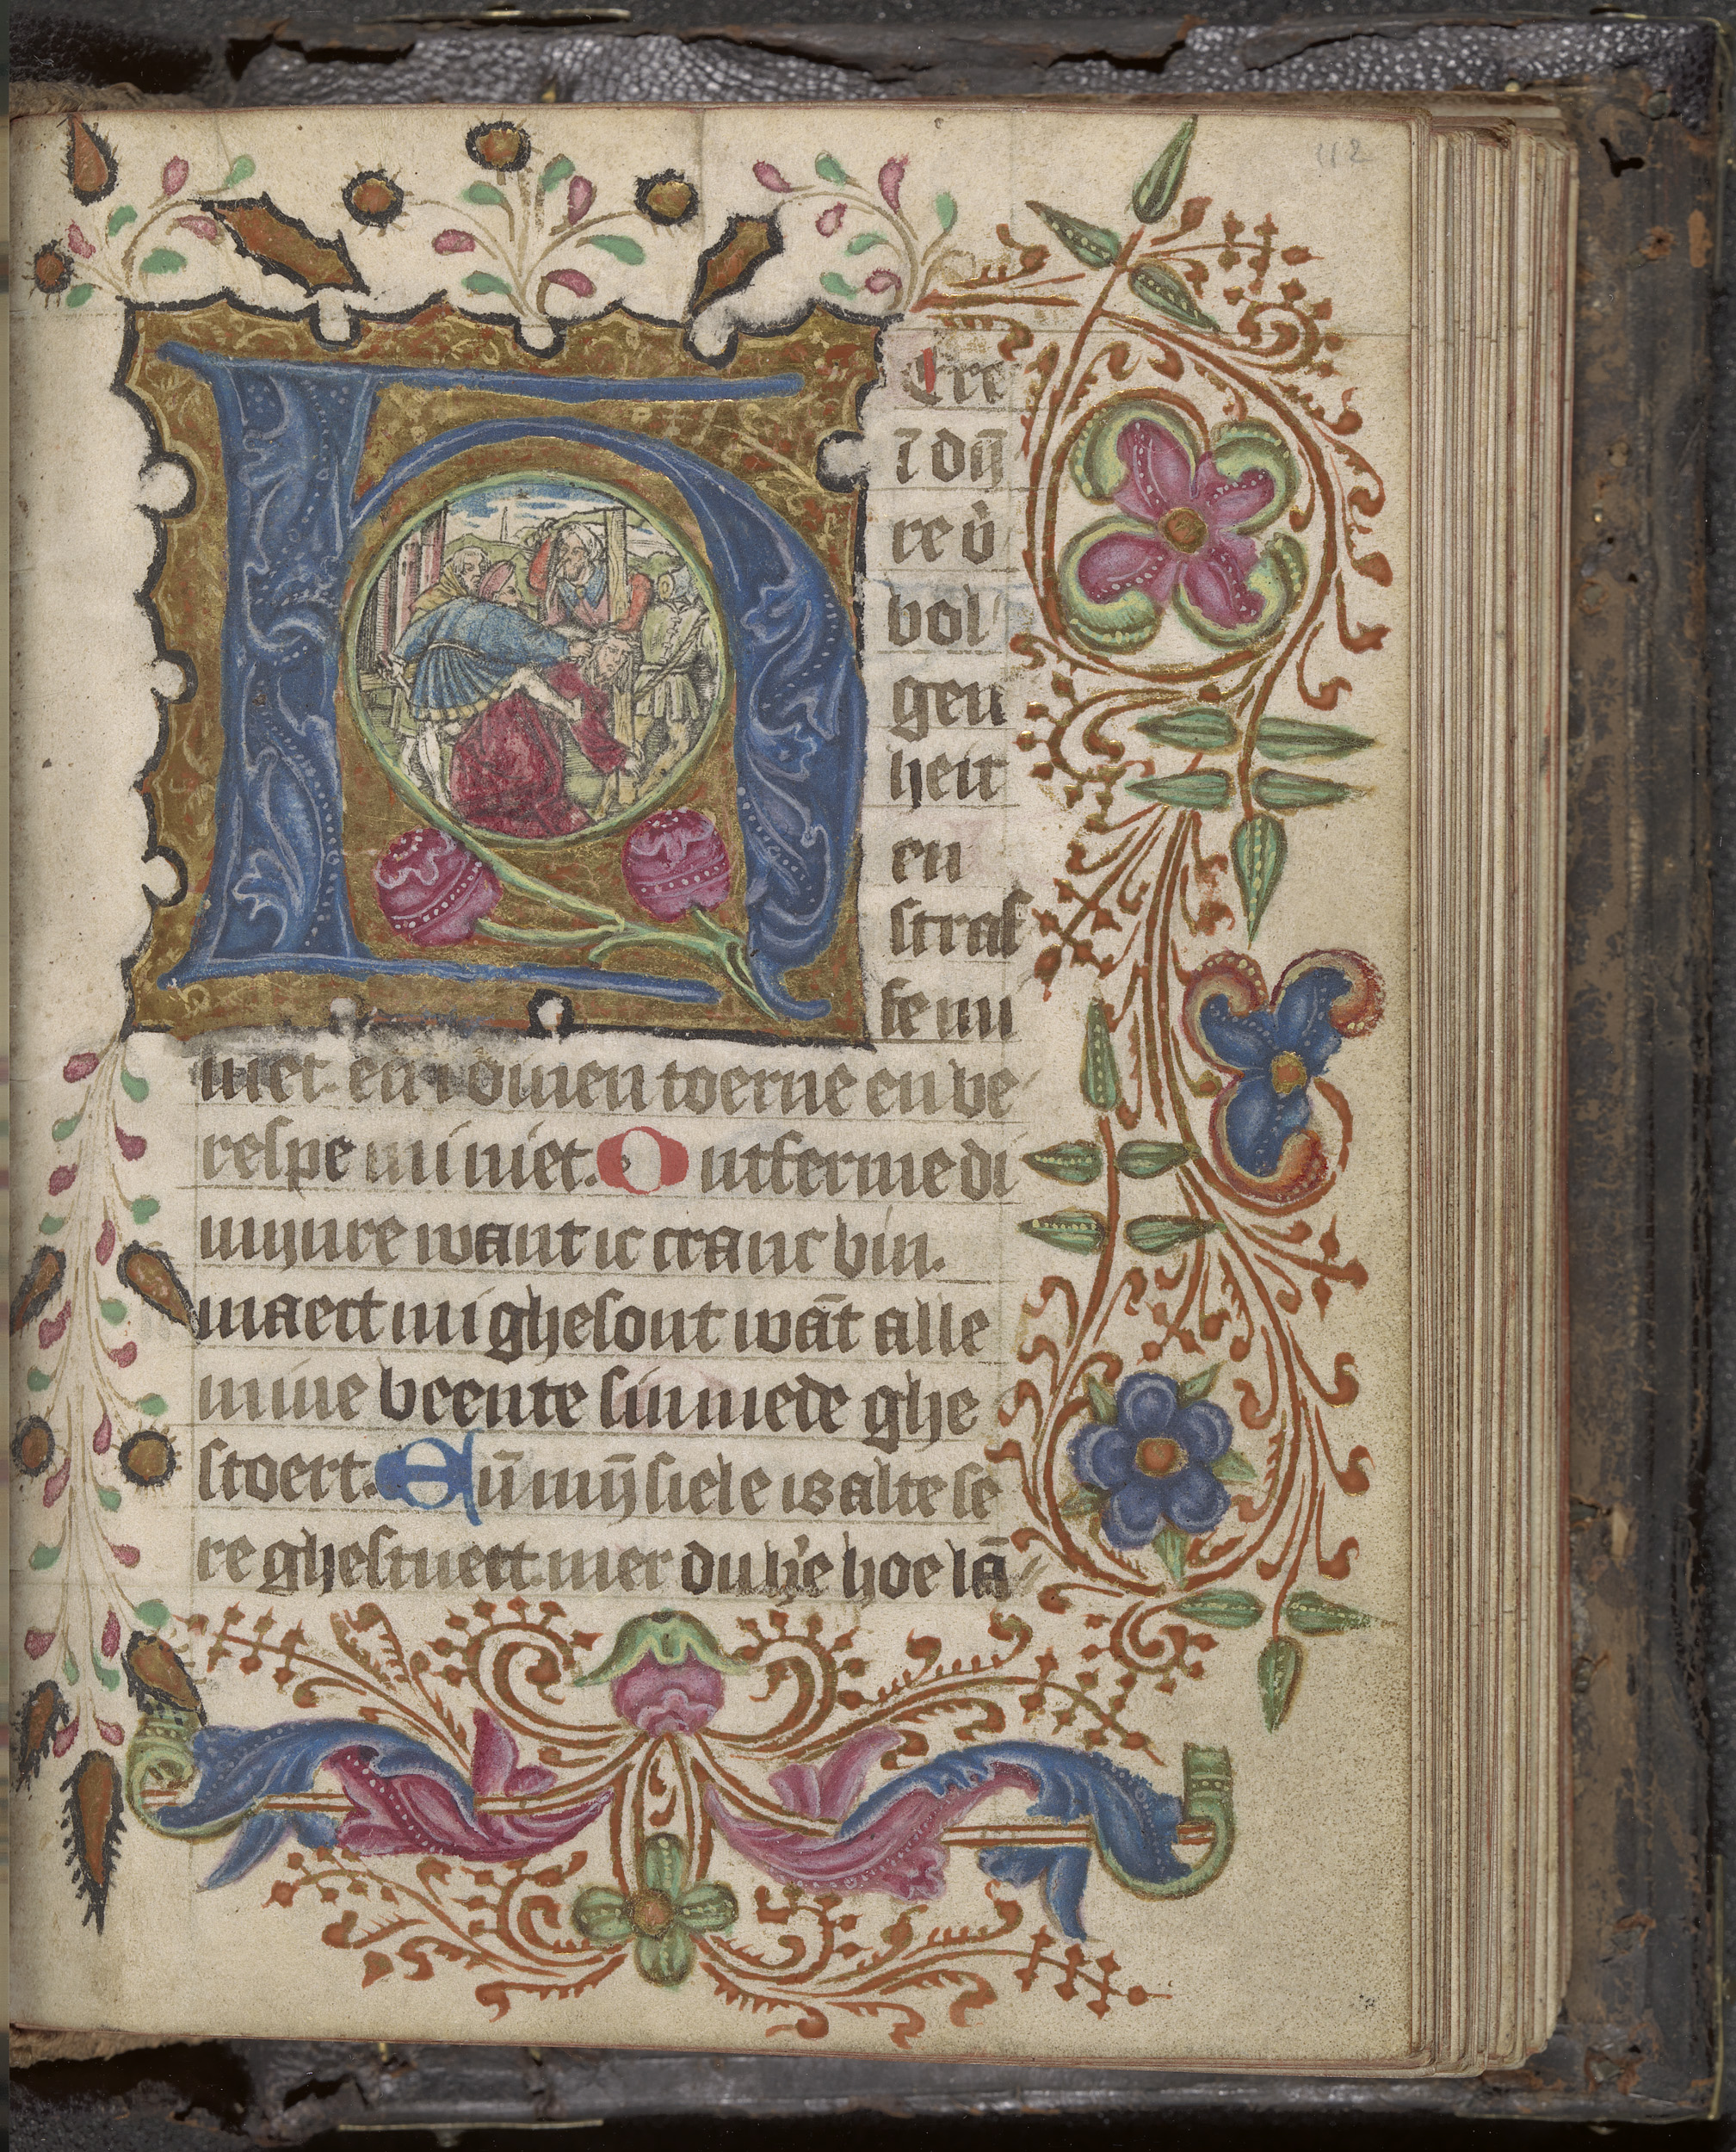 112
H Ere
ī dīn
re v̾
bol
gen
heit
en
straf
fe mi
niet. en ī dinen toerne en be
respe mi niet. Ontferme di
mijnre want ic cranc bin.
maect mi ghesont wāt alle
mine beente sin mede ghe
stoert. Eñ mijn̄ siele is alte se
re ghestuert. mer du h̾e hoe lā